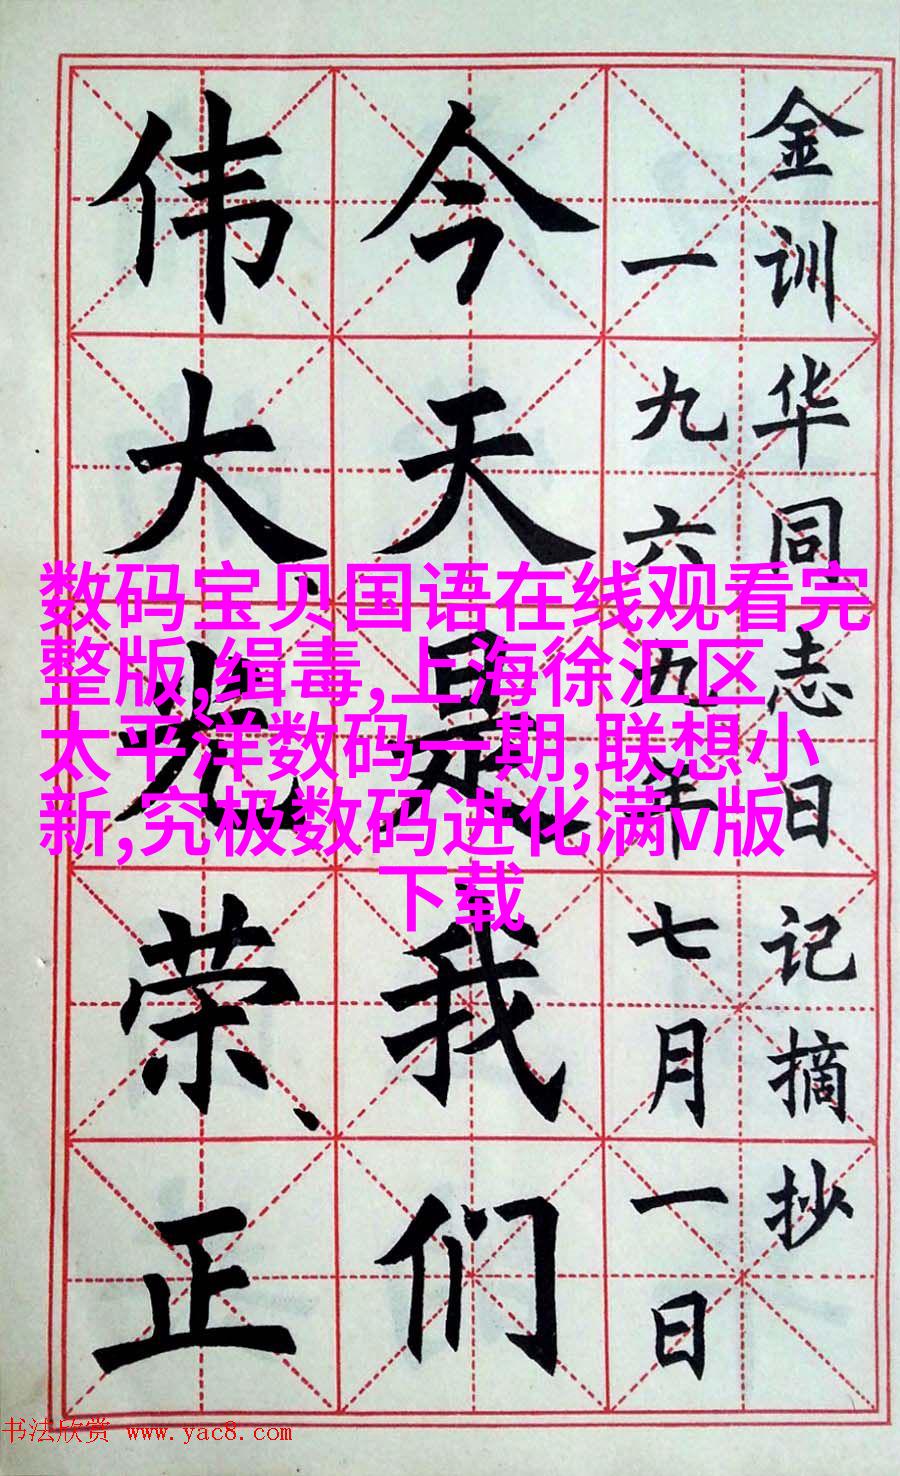 金训华同志日记摘抄
一九六九年七月一日
今天是我们
伟大、光荣、正
数码宝贝国语在线观看完
整版,缉毒,上海徐汇区
太平洋数码一期,联想小
新,究极数码进化满v版
下载
书法欣赏 www.yac8.com